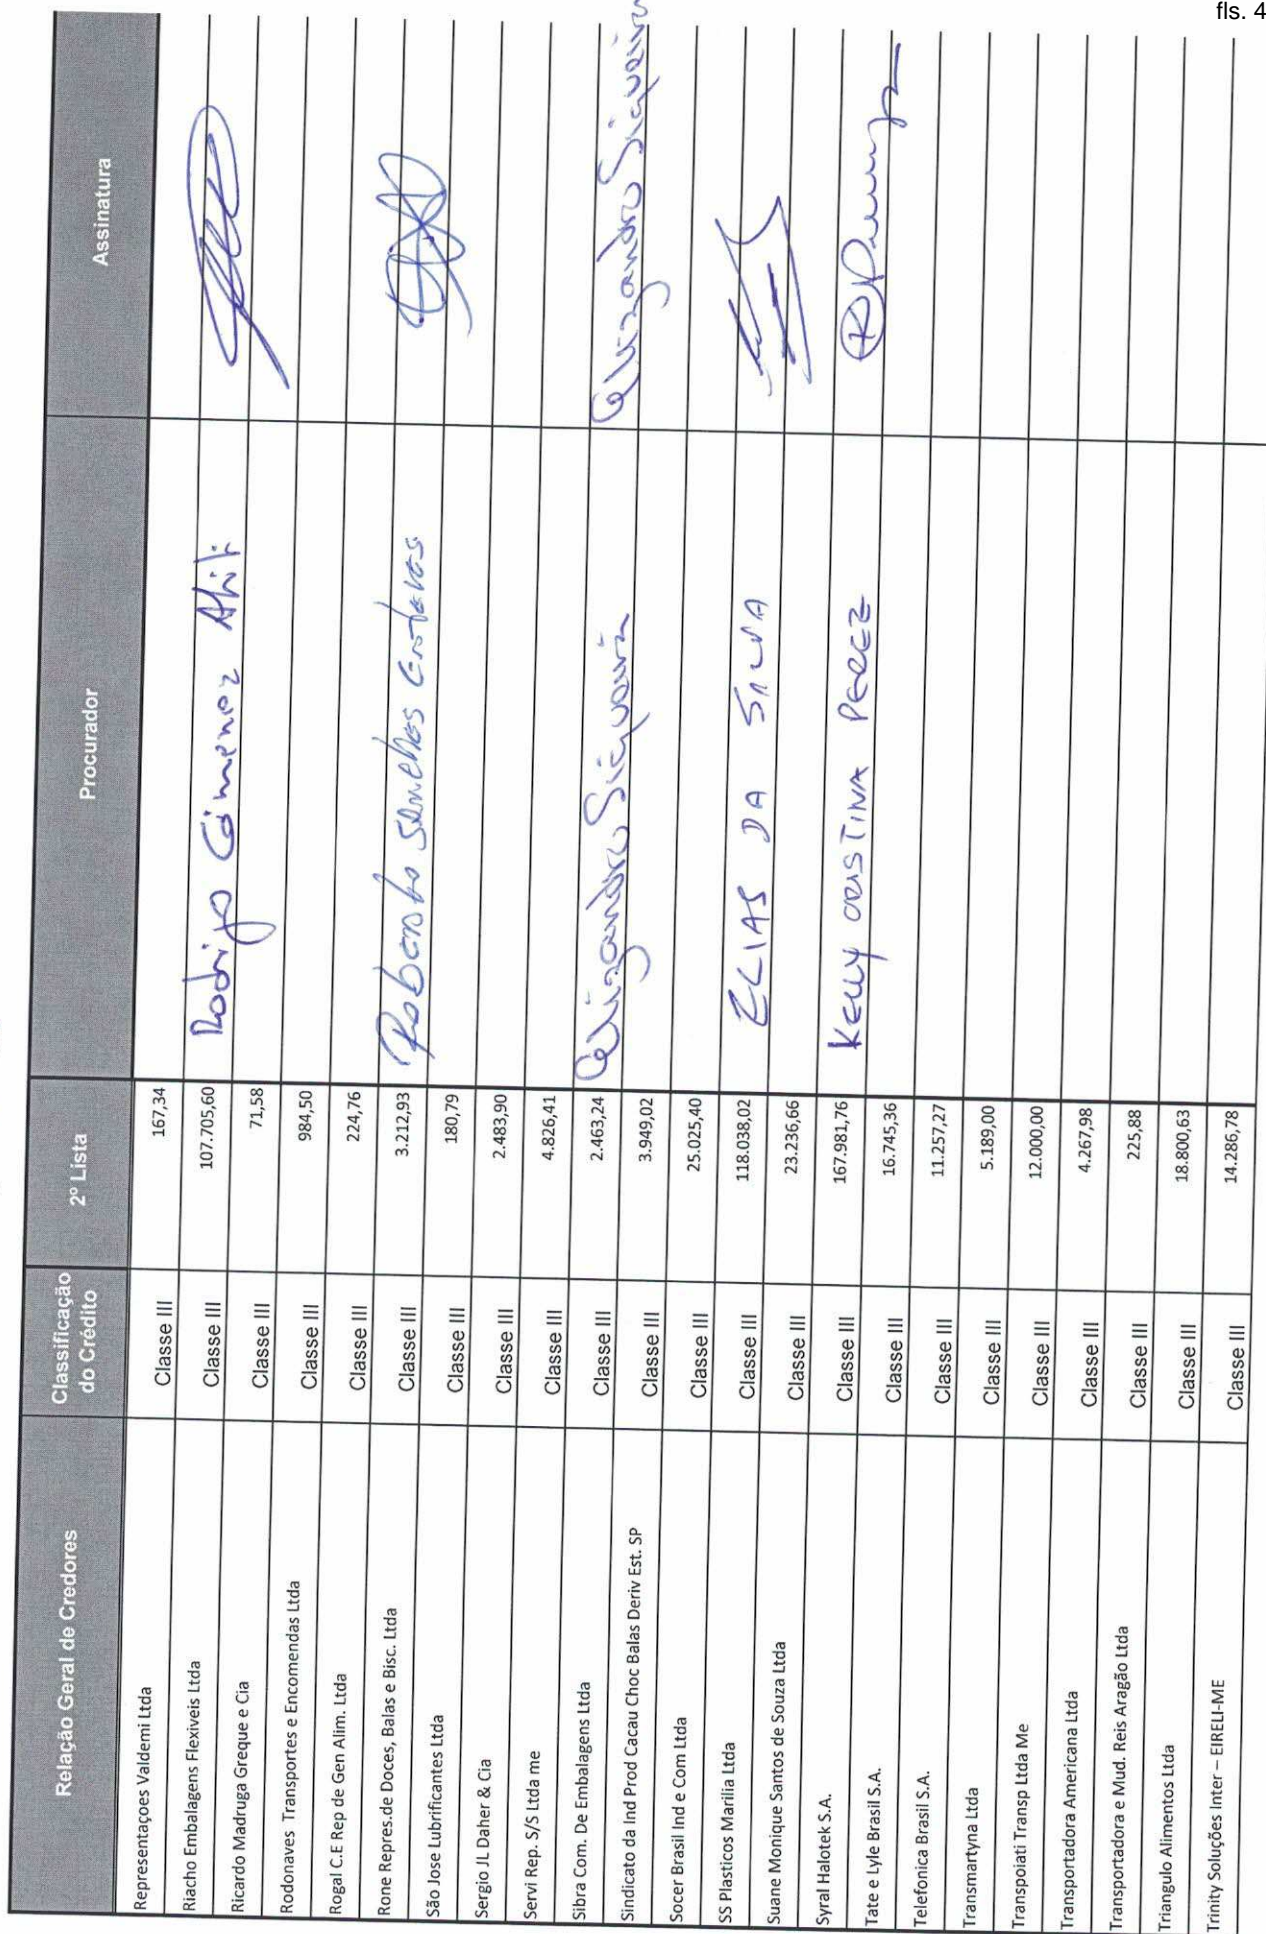 fls. 4
Relação Geral de Credores Classificação do Crédito 2º Lista Procurador Assinatura
Representaçoes Valdemi Ltda Classe III 167,34
Riacho Embalagens Flexiveis Ltda Classe III 107.705,60 Rodrigo
Ricardo Madruga Greque e Cia Classe III 71,58
Rodonaves Transportes e Encomendas Ltda Classe III 984,50
Rogal C.E Rep de Gen Alim. Ltda Classe III 224,76
Rone Repres.de Doces, Balas e Bisc. Ltda Classe III 3.212,93 Roberto Sanches
São Jose Lubrificantes Ltda Classe III 180,79
Sergio JL Daher & Cia Classe III 2.483,90
Servi Rep. S/S Ltda me Classe III 4.826,41
Sibra Com. De Embalagens Ltda Classe III 2.463,24 Elizandro Siqueira Elizandro Siqueira
Sindicato da Ind Prod Cacau Choc Balas Deriv Est. SP Classe III 3.949,02
Socer Brasil Ind e Com Ltda Classe III 25.025,40
SS Plasticos Marilia Ltda Classe III 118.038,02 ELIAS DA SILVA
Suane Monique Santos de Souza Ltda Classe III 23.236,66
Syral Halotek S.A. Classe III 167.981,76 Kelly CRISTINA PEREZ
Tate e Lyle Brasil S.A. Classe III 16.745,36
Telefonica Brasil S.A. Classe III 11.257,27
Transmartyna Ltda Classe III 5.189,00
Transpoiati Transp Ltda Me Classe III 12.000,00
Transportadora Americana Ltda Classe III 4.267,98
Transportadora e Mud. Reis Aragão Ltda Classe III 225,88
Triangulo Alimentos Ltda Classe III 18.800,63
Trinity Soluções Inter – EIRELI-ME Classe III 14.286,78